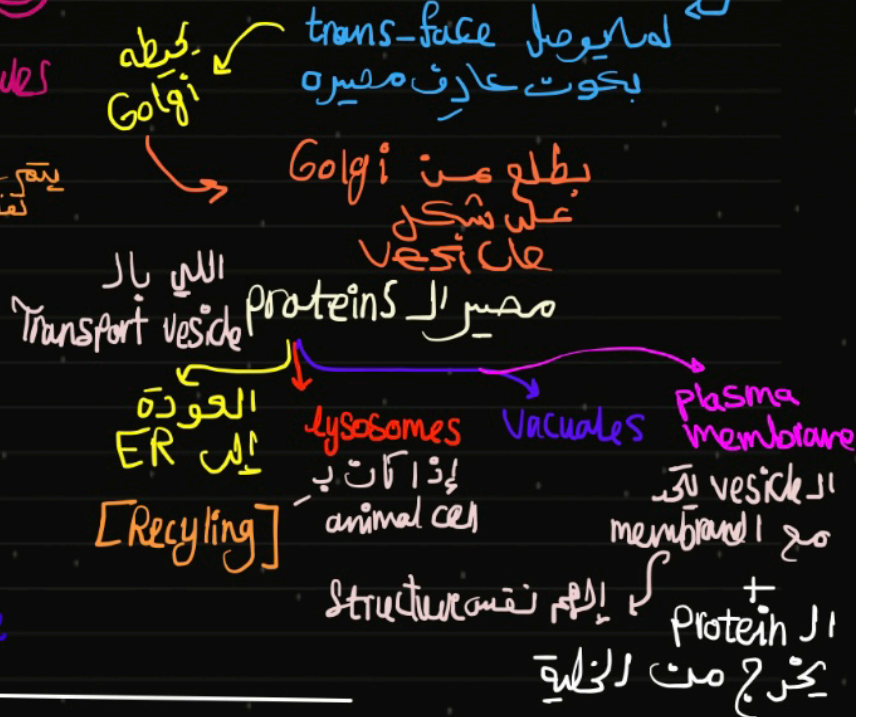 لما يوصل trans-face
بكون عارف مصيره
Golgi
بطلع من Golgi
على شكل
vesicle
مصير الـ proteins
اللي بالـ
Transport vesicle
العودة
إلى ER
[Recyling]
lysosomes
إذا كانت بـ
animal cell
Vacuales
plasma
membrane
الـ vesicle يتحد
مع الـ membrane
إلهم نفس structure
+
الـ Protein
يخرج من الخلية